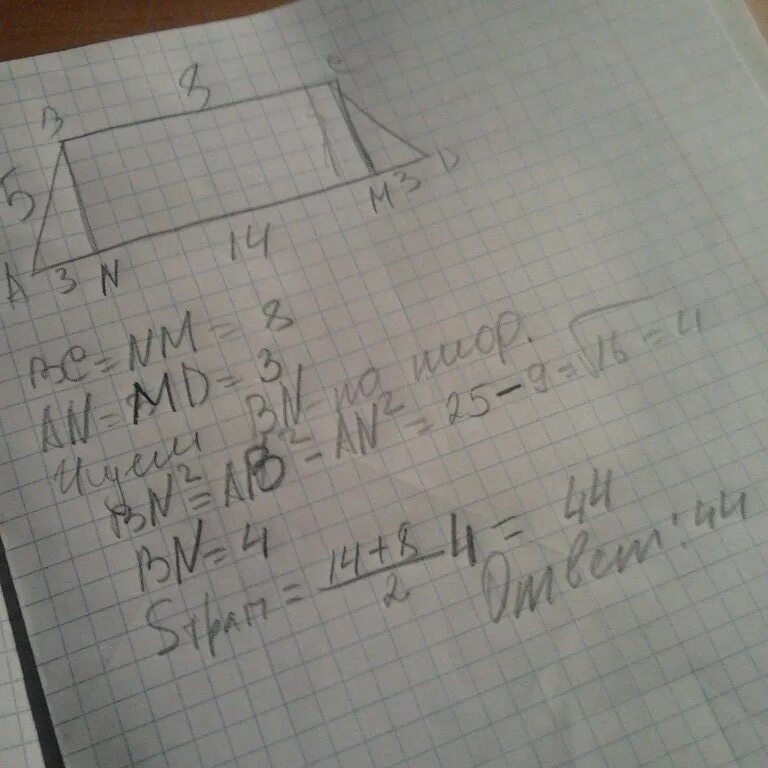 8
B C
5
A 3 N 14 M 3 D
BC = NM = 8
AN = MD = 3
Ищем BN по пиор.
BN² = AB² - AN² = 25 - 9 = √16 = 4
BN = 4
Sтрап = (14+8)/2 4 = 44
Ответ: 44